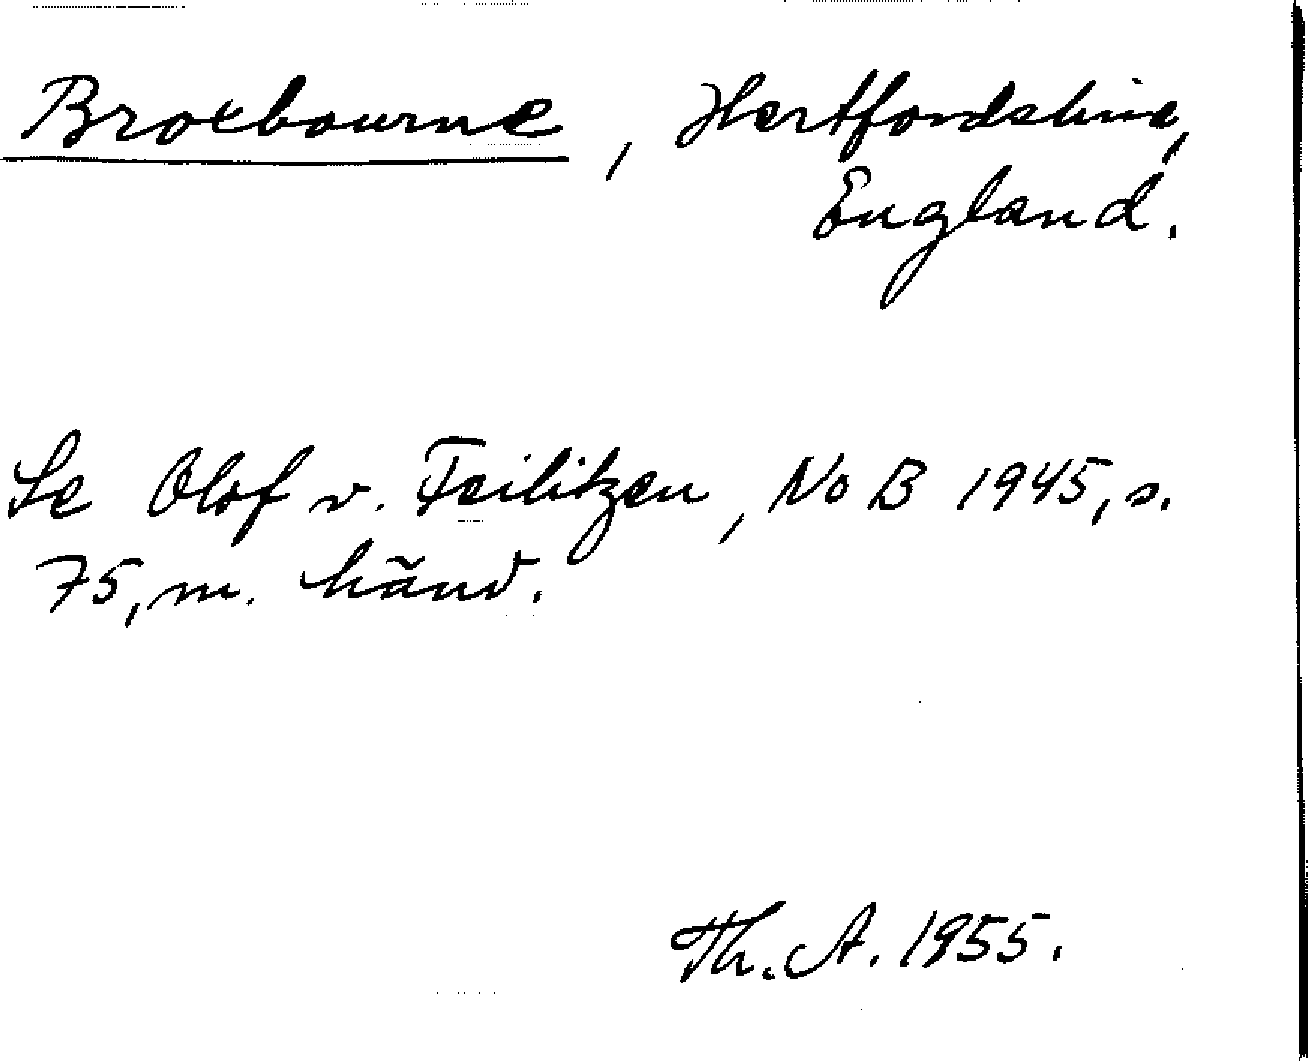 Broxbourne, Hertfordshire,
England.
Se Olof v. Feilitzen, NoB 1945, s.
75, m. hänv.
Th. A. 1955.